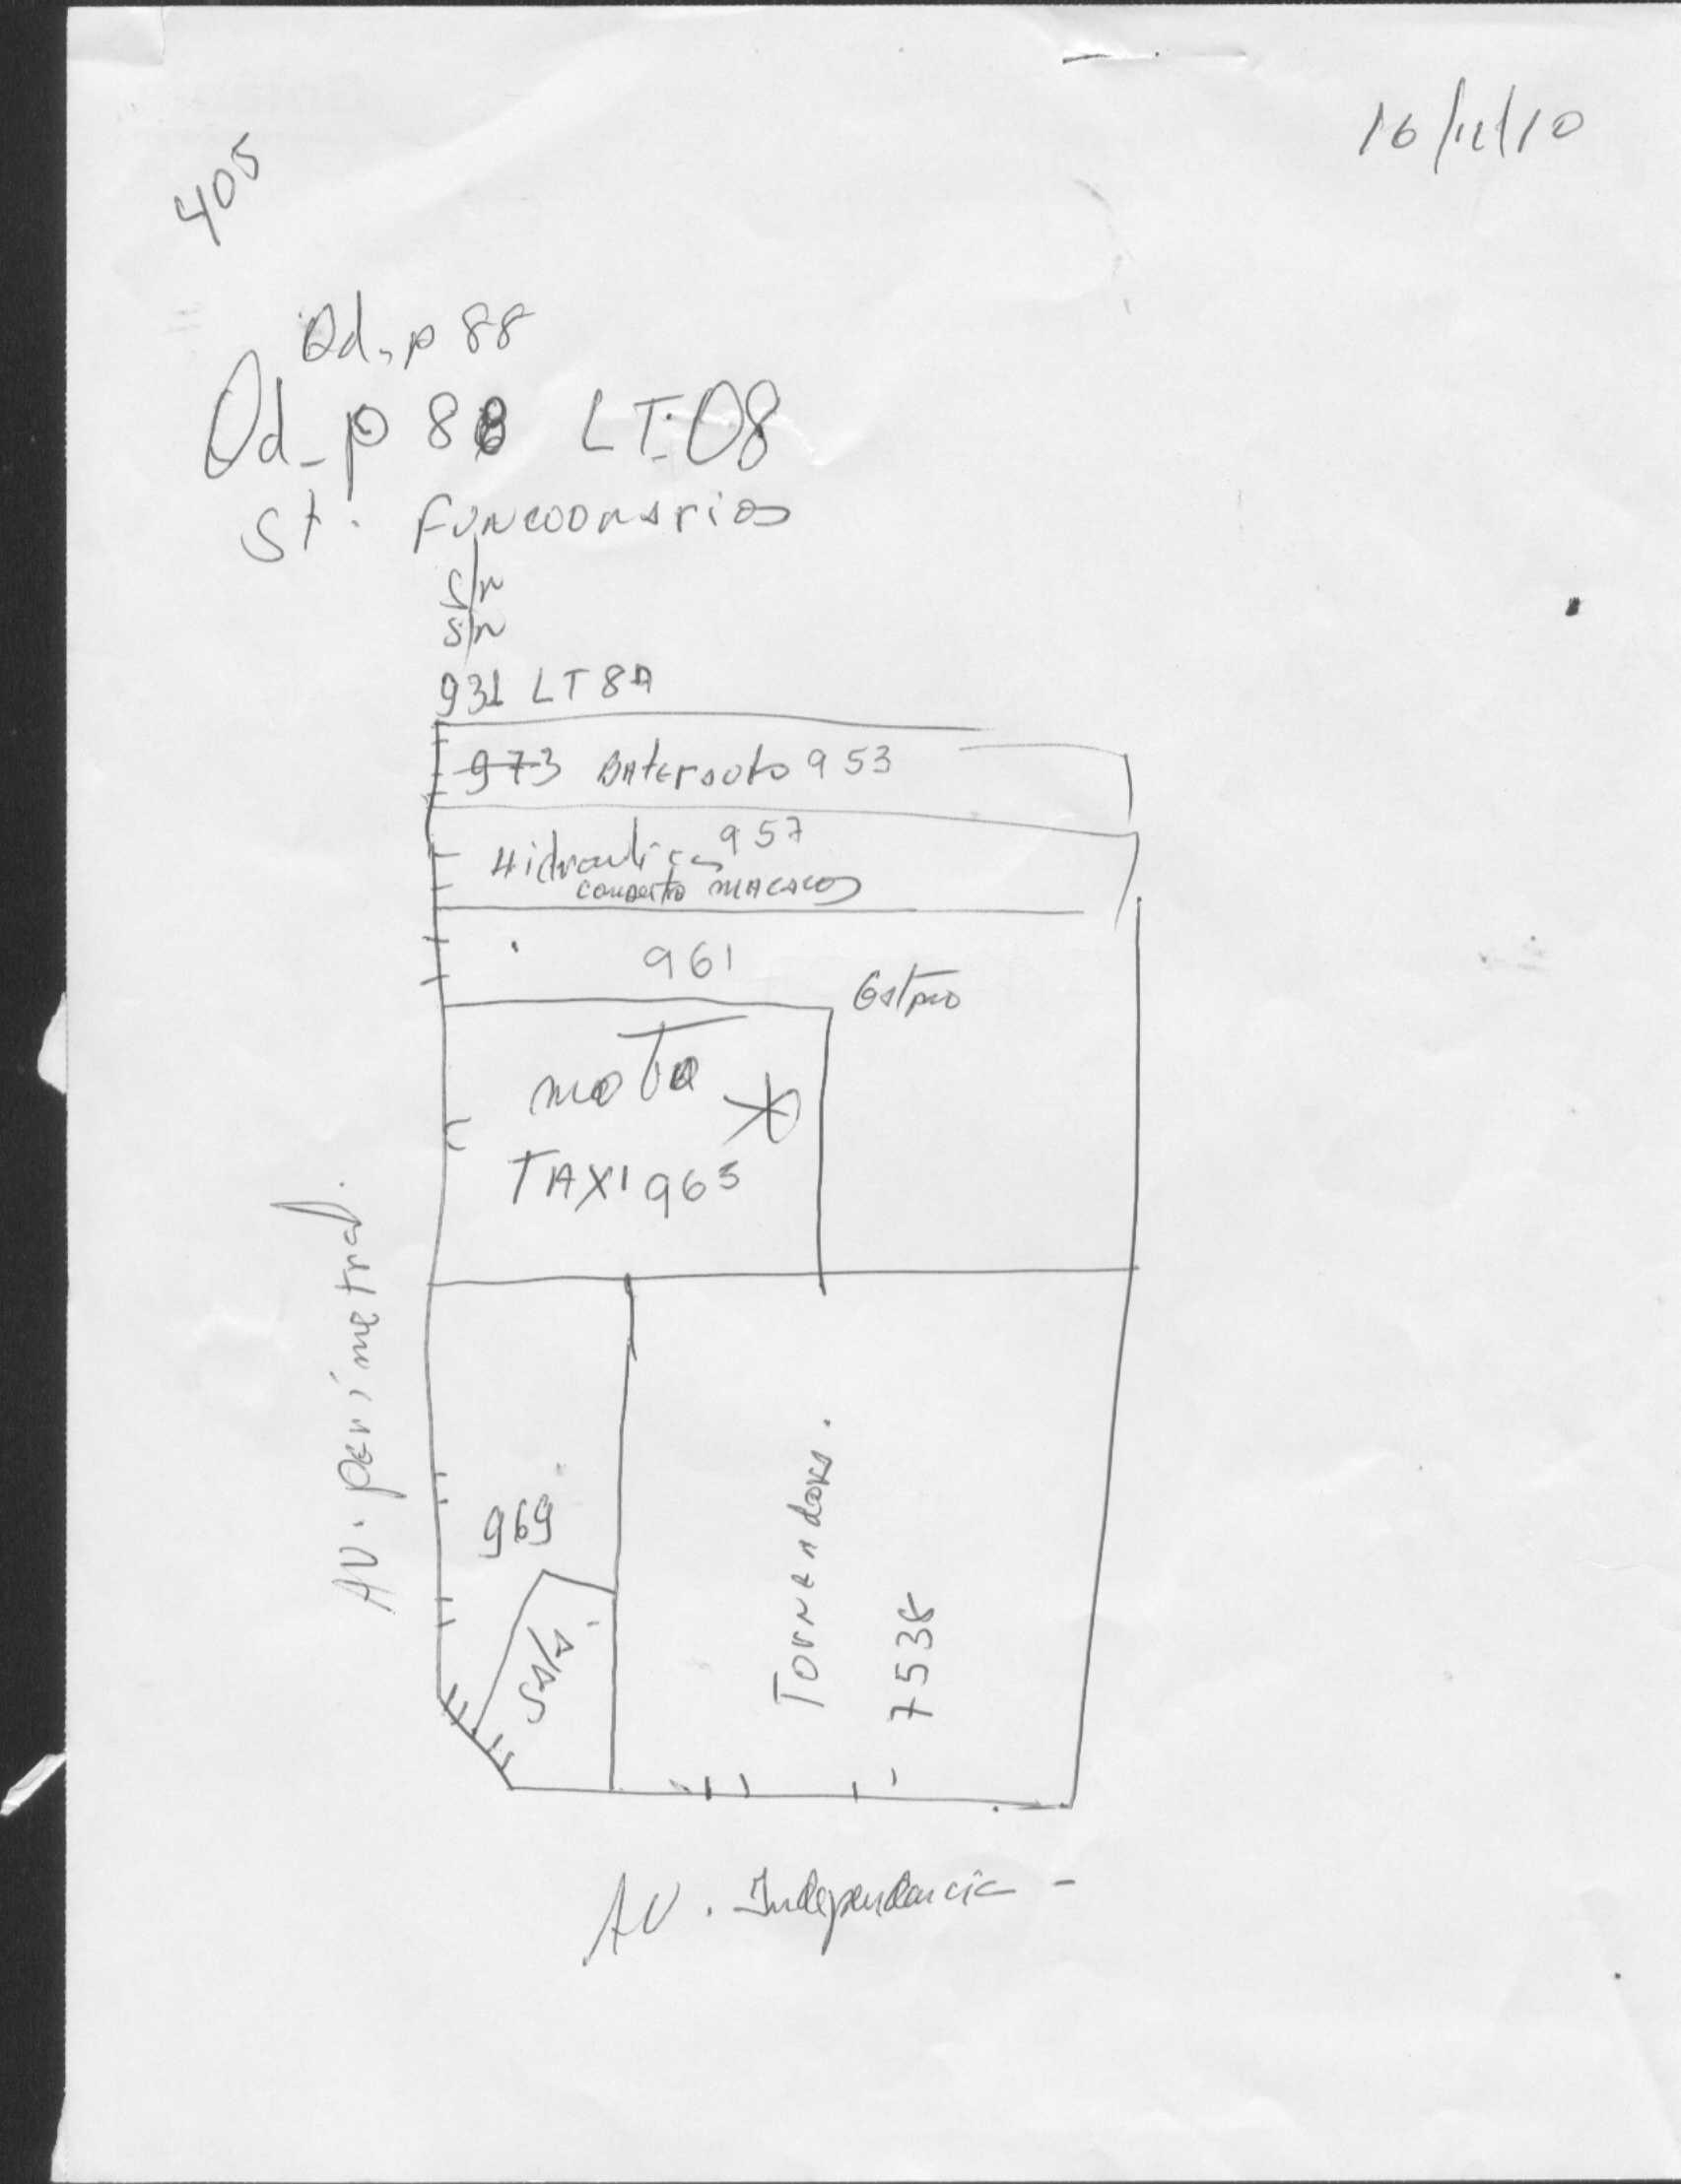 16/11/10
405
Qd. p 88
Qd_p 88 LT:08
St. Funcoonarios
s/n
s/n
931 LT 8A
973 BAterauto 953
Hidraulica 957
conserto MACACOS
961
moto
TAXI 965
AV. perimetral.
969
Sala
Torneadora.
7538
AV. Independencia -